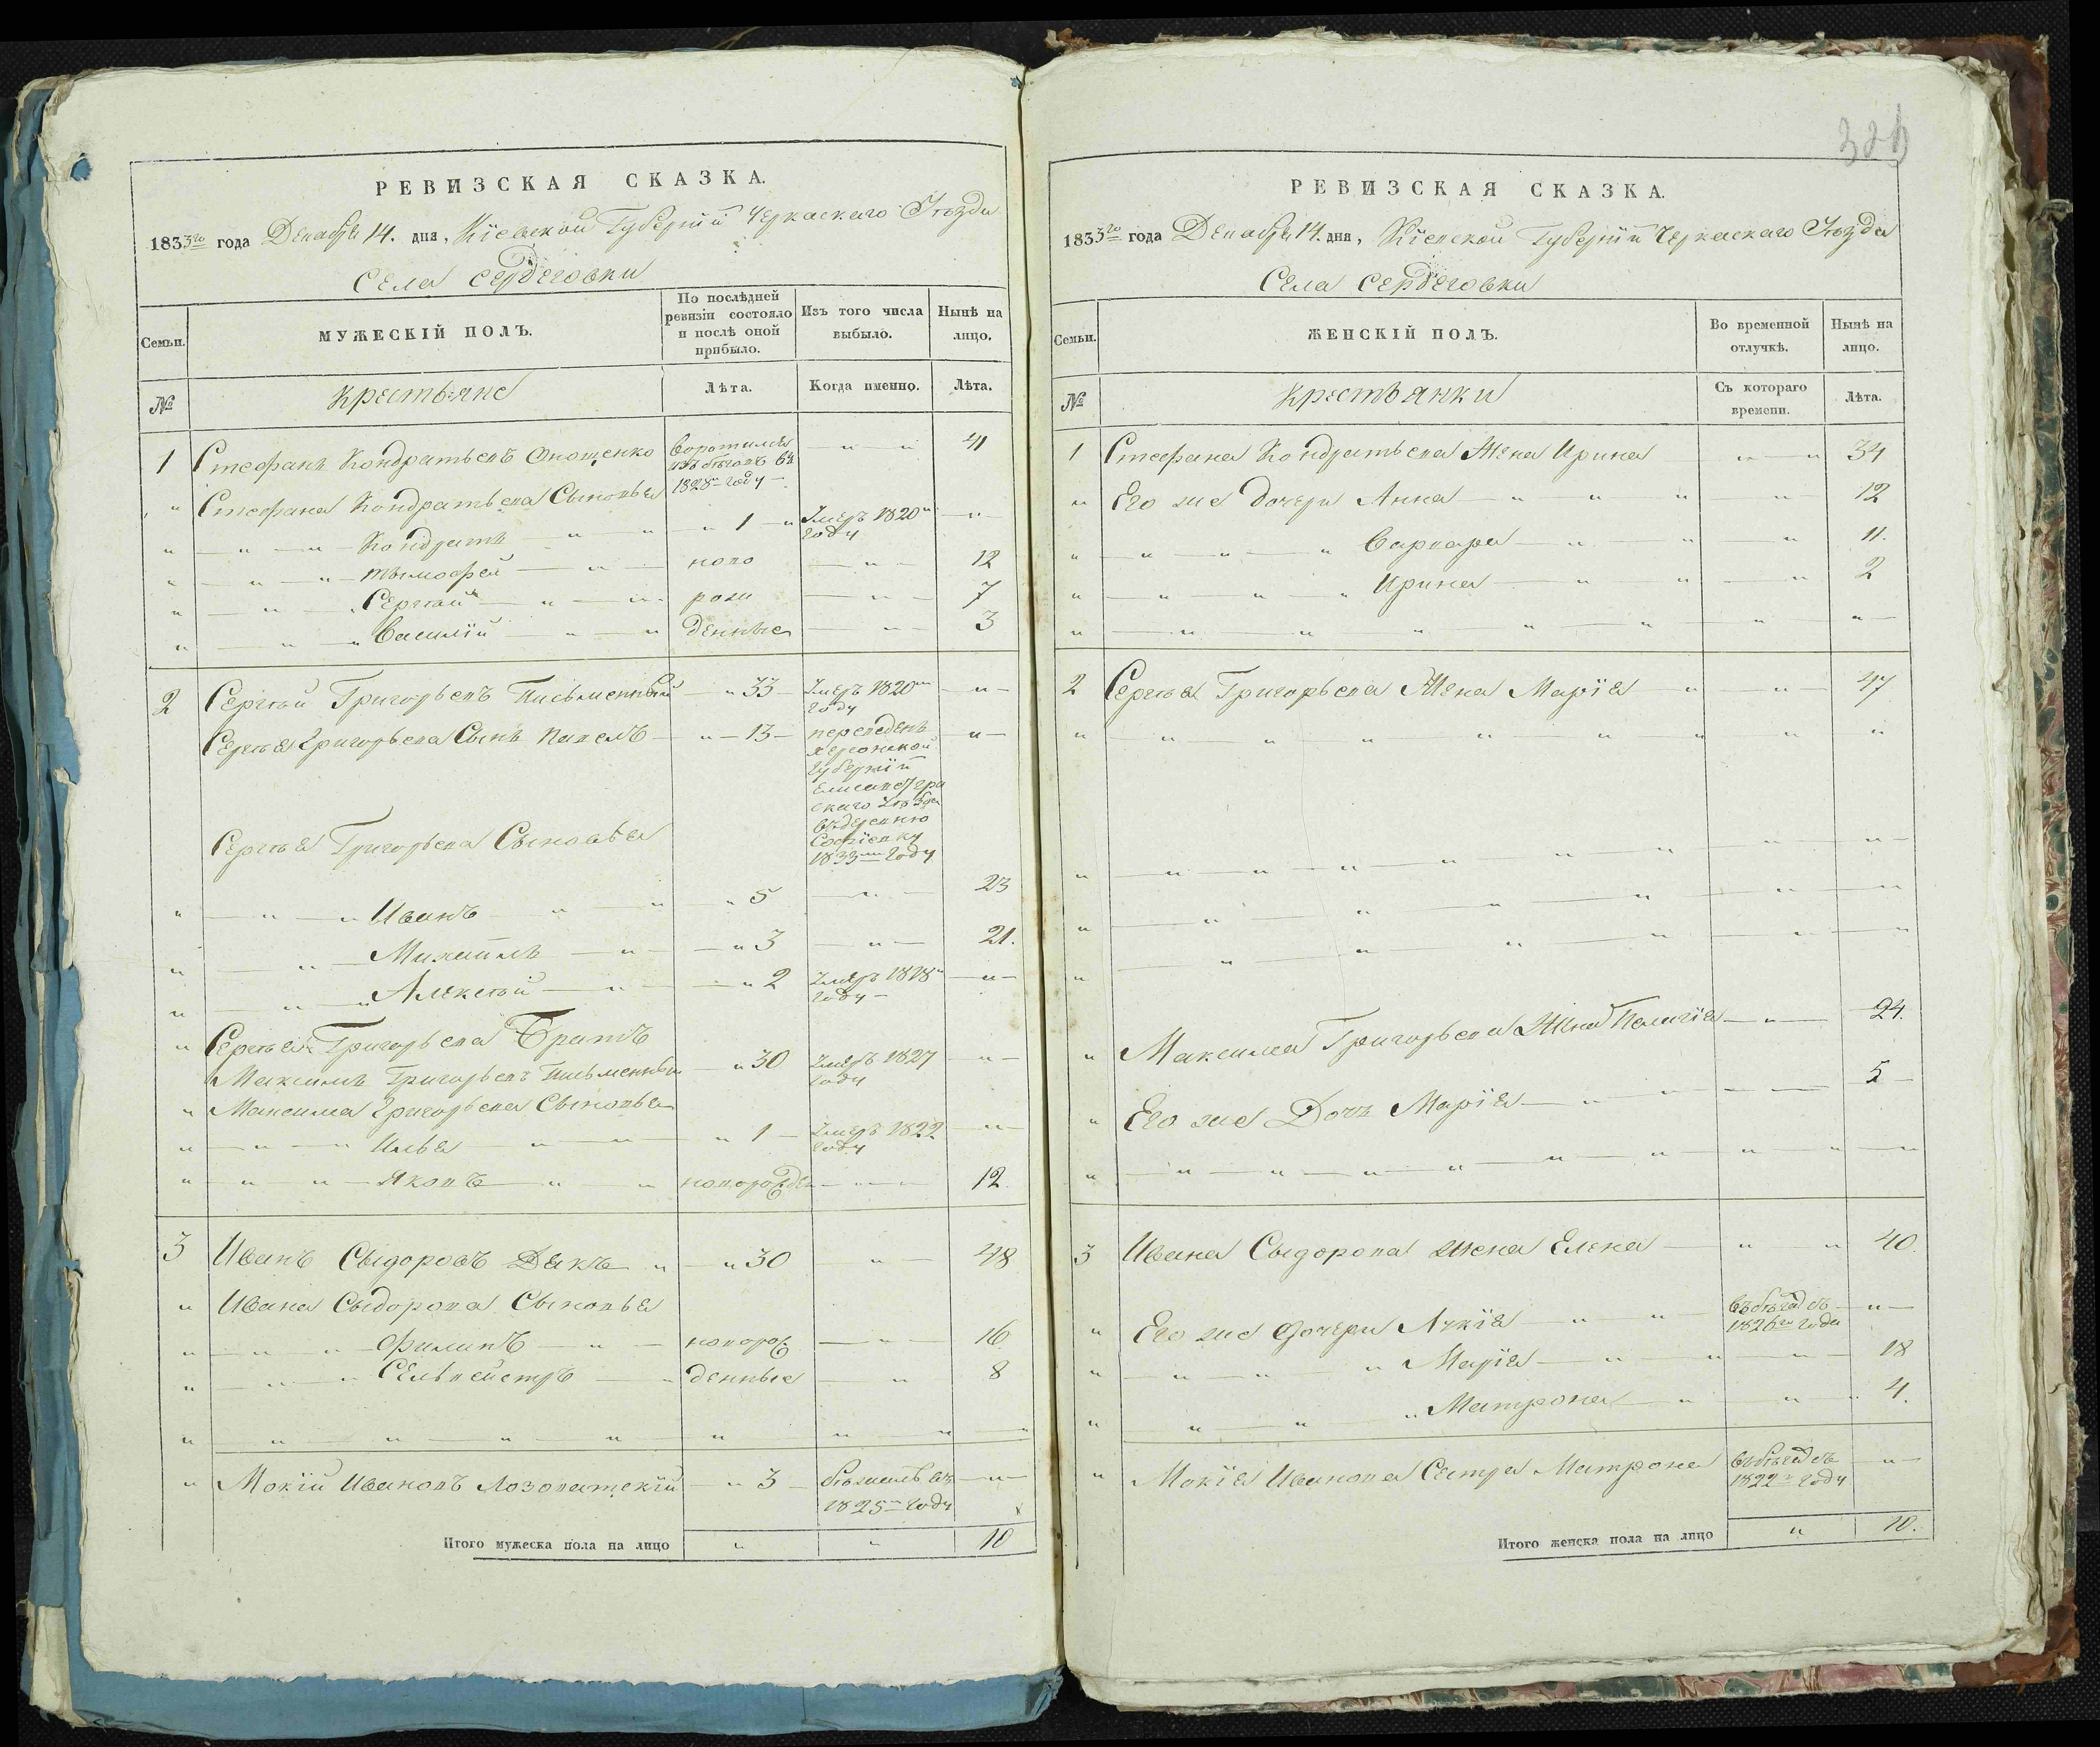 326
РЕВИЗСКАЯ СКАЗКА.
1833го года Декабря 14. дня, Кіевской Губерніи Черкаскаго Уѣзда
Села Сердеговки
Семьи.
МУЖЕСКІЙ ПОЛЪ.
По послѣдней ревизіи состояло и послѣ оной прибыло.
Изъ того числа выбыло.
Нынѣ на лицо.
№
Крестьяне
Лѣта.
Когда именно.
Лѣта.
1 Стефанъ Кондратьевъ Онощенко Воротился изъ бѣговъ въ 1828м году — „ — „ 41
„ Стефана Кондратьева Сыновья
„ — „ — „ — Кондратъ — „ — „ „ 1 — „ Умеръ 1820м году — „ —
„ — „ — „ — Тымофей — „ — ново — „ — 12
„ — „ — „ Сергѣй — „ — „ рож — „ — 7
„ — „ — „ Василій — „ — „ денные — „ — 3
2 Сергѣй Григорьевъ Письменный — „ 33 — Умеръ 1820м году — „ —
Сергѣя Григорьева Сынъ Павелъ — „ — 13 — переведенъ Херсонской Губерніи Елисаветгра скаго Уѣзда въ деревню Софіевку 1833м году — „ —
Сергѣя Григорьева Сыновья
„ — „ — „ Иванъ — „ — „ „ 5 — „ — 23
„ — „ — Михайлъ — „ — — „ 3 — „ — 21.
„ — „ — „ Алексѣй — „ — — „ 2 Умеръ 1828м году — — „ —
„ Сергѣя Григорьева Братъ
Максимъ Григорьевъ Письменный — „ 30 Умеръ 1827 году — „ —
„ Максима Григорьева Сыновья
„ — „ — „ Илья — „ — „ — „ 1 — Умеръ 1822 году — „ —
„ — „ — „ — Яковъ — „ — „ новорожден — „ — 12.
3 Иванъ Сыдоровъ Дякъ — „ — „ 30 — „ — 48
„ Ивана Сыдорова Сыновья
„ — „ — „ Филипъ — „ — новорож — „ — 16
„ — „ — „ Сельвейстръ — „ денные — „ 8
„ „ — „ — „ — „ — „ „ „ — „ „
„ Мокій Ивановъ Лозоватскій — „ 3 — бѣжалъ въ 1825м году — „ —
Итого мужеска пола на лицо „ „ 10
РЕВИЗСКАЯ СКАЗКА.
1833го года Декабря 14. дня, Кіевской Губерніи Черкаскаго Уѣзда
Села Сердеговки
Семьи.
ЖЕНСКІЙ ПОЛЪ.
Во временной отлучкѣ.
Нынѣ на лицо.
№
Крестьянки
Съ котораго времени.
Лѣта.
1 Стефана Кондратьева Жена Ирина — „ — „ 34
„ Его же дочери Анна — „ „ „ — „ — 12
„ — „ — „ — „ Варвара — „ — „ — „ 11.
„ — „ — „ — „ Ирина — „ „ — „ 2
„ — „ — „ „ „ — „ — „ — „ —
2 Сергѣя Григорьева Жена Марія „ — „ — 47
„ „ „ „ „ „ „ „ „
„ — „ — „ — „ — „ — „ — „ — „ — „ —
„ — „ — „ — „ — „ — „ — „
„ — „ — „ — „ — „ — „ — „
„ Максима Григорьева Жена Пелагія — „ — 24.
„ Его же Дочь Марія — „ — „ — — 5 —
„ — „ — „ — „ — „ — „ — „ — „ — „ — „
3 Ивана Сыдорова жена Елена — „ „ 40.
„ Его же дочери Лукія — „ — „ — Въ бѣгахъ съ 1826го года — „ —
„ — „ „ „ Марія — „ — „ — „ — 18
„ „ — „ — „ Матрона — „ — „ — 4.
„ Мокія Иванова Сестра Матрона въ бѣгахъ съ 1822го году — „ —
Итого женска пола на лицо „ 10.